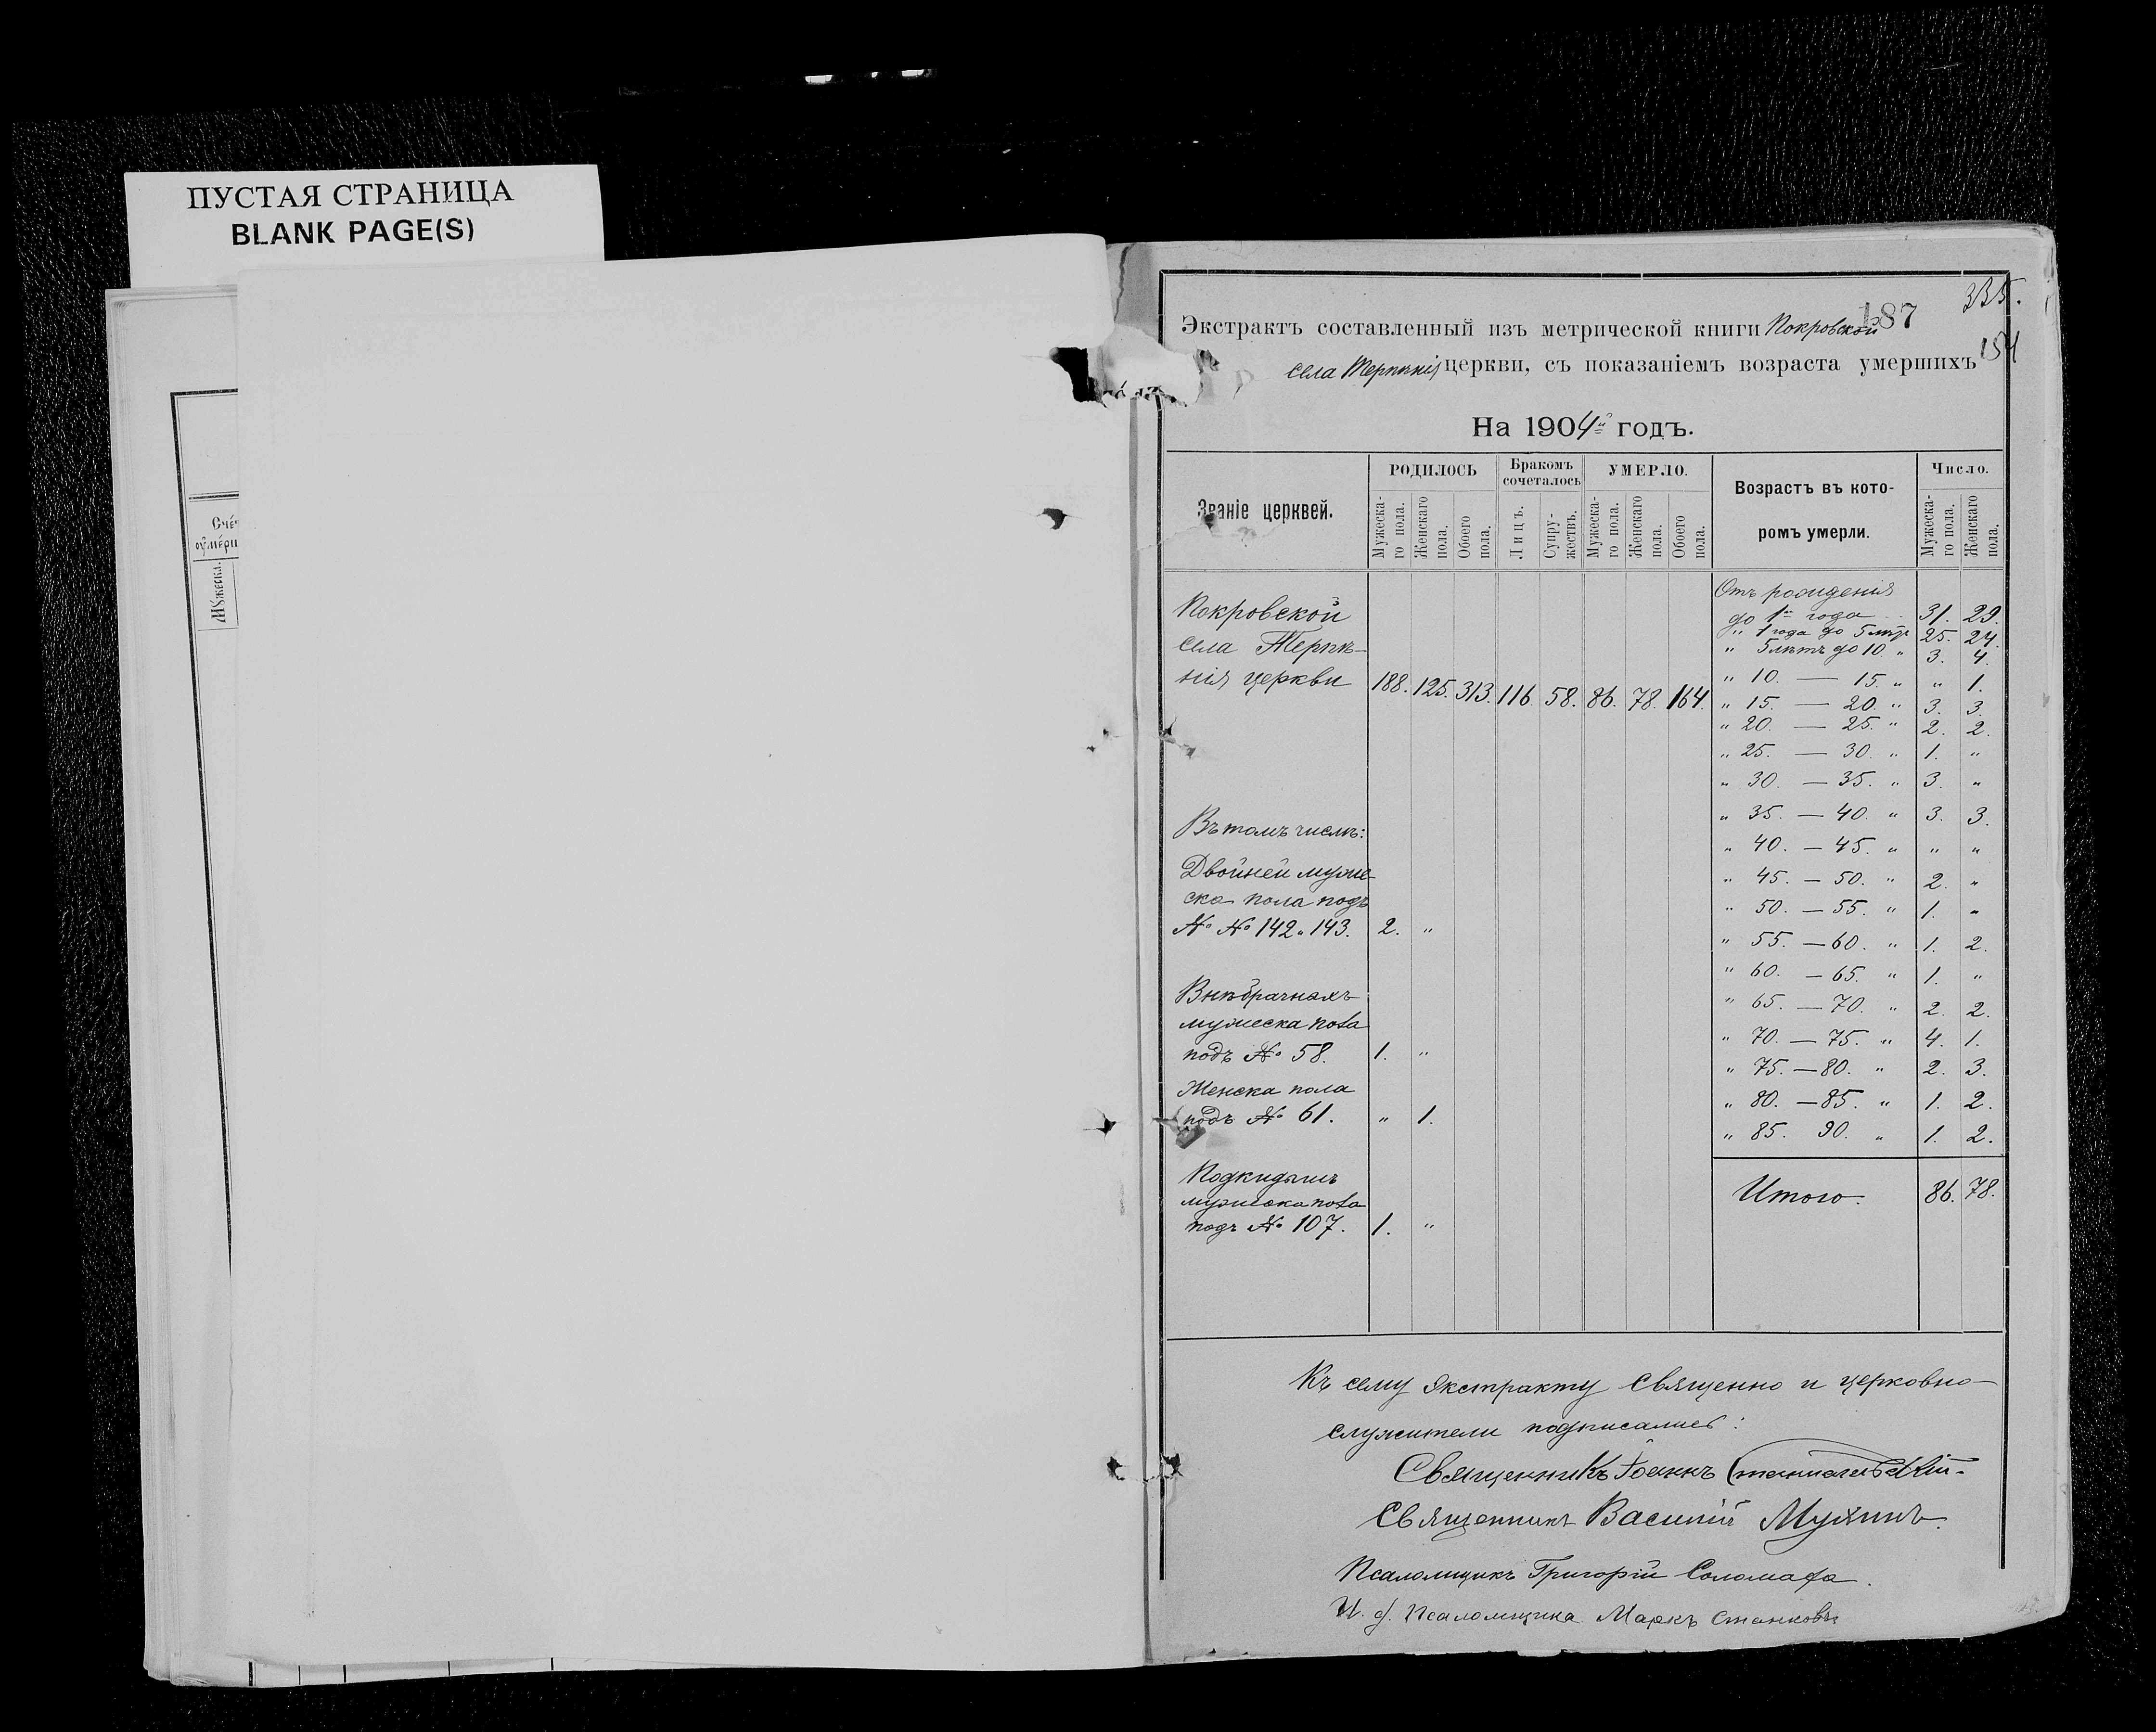 ПУСТАЯ СТРАНИЦА
BLANK PAGE(S)
Мужеска.
335.
187
154
Экстрактъ составленный изъ метрической книги Покровской
села Терпѣнія церкви, съ показаніемъ возраста умершихъ
На 1904й годъ.
Званіе церквей.
РОДИЛОСЬ
Мужеска-го пола.
Женскаго пола.
Обоего пола.
Бракомъ сочеталось
Лицъ.
Супру-жествъ.
УМЕРЛО.
Мужеска-го пола.
Женскаго пола.
Обоего пола.
Возрастъ въ кото-ромъ умерли.
Число.
Мужеска-го пола.
Женскаго пола.
Покровской
села Терпѣ-
нія церкви 188. 125. 313. 116. 58. 86. 78. 164.
Въ томъ числѣ:
Двойней муже-
ска пола подъ
№ № 142 " 143. 2. "
Внѣбрачныхъ
мужеска пола
подъ № 58. 1. "
Женска пола
подъ № 61. " 1.
Подкидышъ
мужеска пола
подъ № 107. 1. "
Отъ рожденія
до 1го года 31. 29.
" 1 года до 5 лѣтъ 25. 24.
" 5 лѣтъ до 10. " 3. 4.
" 10. — 15. " " 1.
" 15. — 20. " 3. 3.
" 20. — 25. " 2. 2.
" 25. — 30. " 1. "
" 30. — 35. " 3. "
" 35. — 40. " 3. 3.
" 40. — 45. " " "
" 45. — 50. " 2. "
" 50. — 55. " 1. "
" 55. — 60. " 1. 2.
" 60. — 65. " 1. "
" 65. — 70. " 2. 2.
" 70. — 75. " 4. 1.
" 75. — 80. " 2. 3.
" 80. — 85. " 1. 2.
" 85. 90. " 1. 2.
Итого. 86. 78.
Къ сему экстракту священно и церковно-
служители подписались:
Священникъ Іоаннъ
Священникъ Василій Мухинъ.
Псаломщикъ Григорій Соломаха.
И. д. Псаломщика Маркъ Станковъ